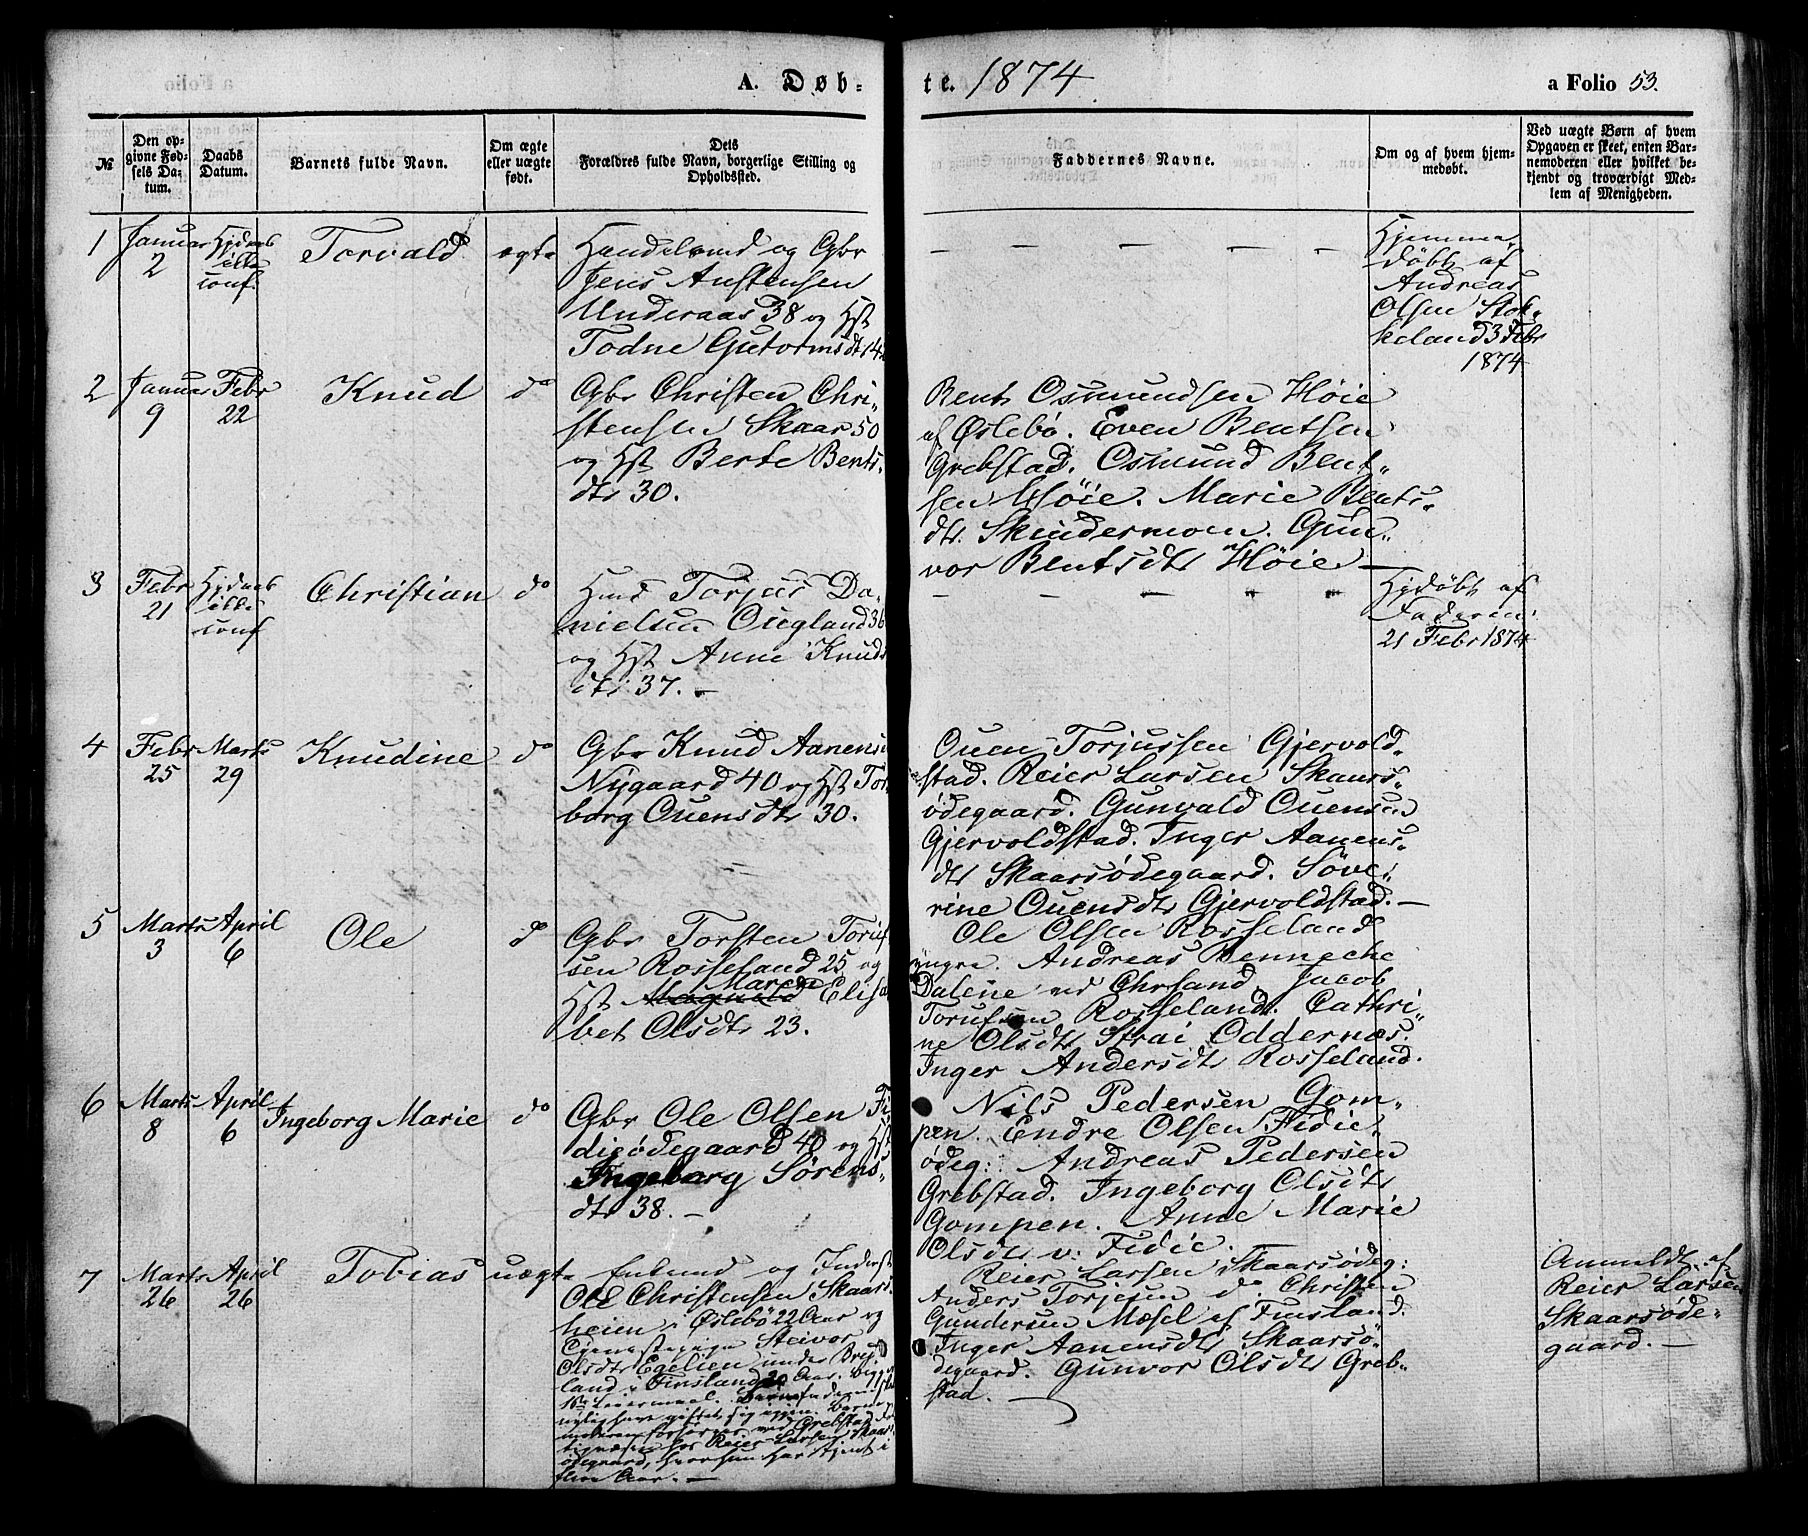 A. Døb-
te. 1874
a Folio 53.
№
Den op-
givne Fød-
sels Da-
tum.
Daabs
Datum.
Barnets fulde Navn.
Om ægte
eller uægte
født.
Dets
Forældres fulde Navn, borgerlige Stilling og
Opholdssted.
Faddernes Navne.
Om og af hvem hjem-
medøbt.
Ved uægte Børn af hvem
Opgaven er skeet, enten Bar-
nemoderen eller hvilket be-
kjendt og troværdigt Med-
lem af Menigheden.
1
Januar
2
ikke
conf.
Torvald
ægte
Handelsmd og Gbr
Jens Anstensen
Underaas 38 og Hst
Todne Gutormsdt 14
Hjemme
døbt af
Andreas
Olsen Stok-
keland 3 Febr
1874
2
Januar
9
Febr
22
Knud
do
Gbr Christen Chri-
stensen Skaar 50
og Hst Berte Bents-
dtr 30.
Bent Osmundsen Høie
af Øslebø. Even Bentsen
Grebstad. Osmund Bent-
sen Høie. Marie Bents-
dtr Skindermoen. Gun-
vor Bentsdtr Høie —
3
Febr
21
ikke
conf
Christian
do
Hmd Torjus Da-
nielsen Ougland 36
og Hst Anne Knuds
dtr 37. —
Hjdøbt af
Faderen
21 Febr 1874
4
Febr
25
Marts
29
Knudine
do
Gbr Knud Aanens
Nygaard 40 og Hst Tor
borg Ouensdtr 30.
Ouen Torjussen Gjervold-
stad. Reier Larsen Skaars-
ødegaard. Gunvald Ouensen
Gjervoldstad. Inger Aanens-
dtr Skaarsødegaard. Søve-
rine Ouensdtr Gjervoldstad. —
5
Marts
3
April
6
Ole
do
Gbr Torsten Toruf
sen Rosseland 25 og
Maren
Hst Elisa
bet Olsdtr 23.
Ole Olsen Rosseland
yngre. Andreas Benneche
Dalene ved Chrsand, Jacob
Torufsen Rosseland. Cathri-
ne Olsdtr Strai Oddernæs.
Inger Andersdtr Rosseland.
6
Marts
8
April
6
Ingeborg Marie
do
Gbr Ole Olsen Fi
dieødegaard 40 og Hst
Ingeborg Sørens-
dtr 38. —
Nils Pedersen Gom-
pen. Endre Olsen Fidie-
ødeg: Andreas Pedersen
Grebstad. Ingeborg Olsdtr
Gompen. Anne Marie
Olsdtr v: Fidie.
7
Marts
26
April
26
Tobias
uægte
Enkemd og Inderst
Ole Christensen Skaars-
heien i Øslebø 22 Aar og
Steivor
Olsdtr Egelien under Brej
land i Finsland 20 Aar. Begge
nylig have giftet sig
ved Grebstad
hos Reier Larsen Skaars
ødegaard, hvor hun har tjent i
flere Aar. —
Reier Larsen Skaarsødeg:
Anders Torjesen do. Christen
Gundersen Mæsel af Finsland.
Inger Aanensdtr Skaarsø-
degaard. Gunvor Olsdtr Greb-
stad. —
Anmeldt af
Reier Larsen
Skaarsøde-
gaard. —